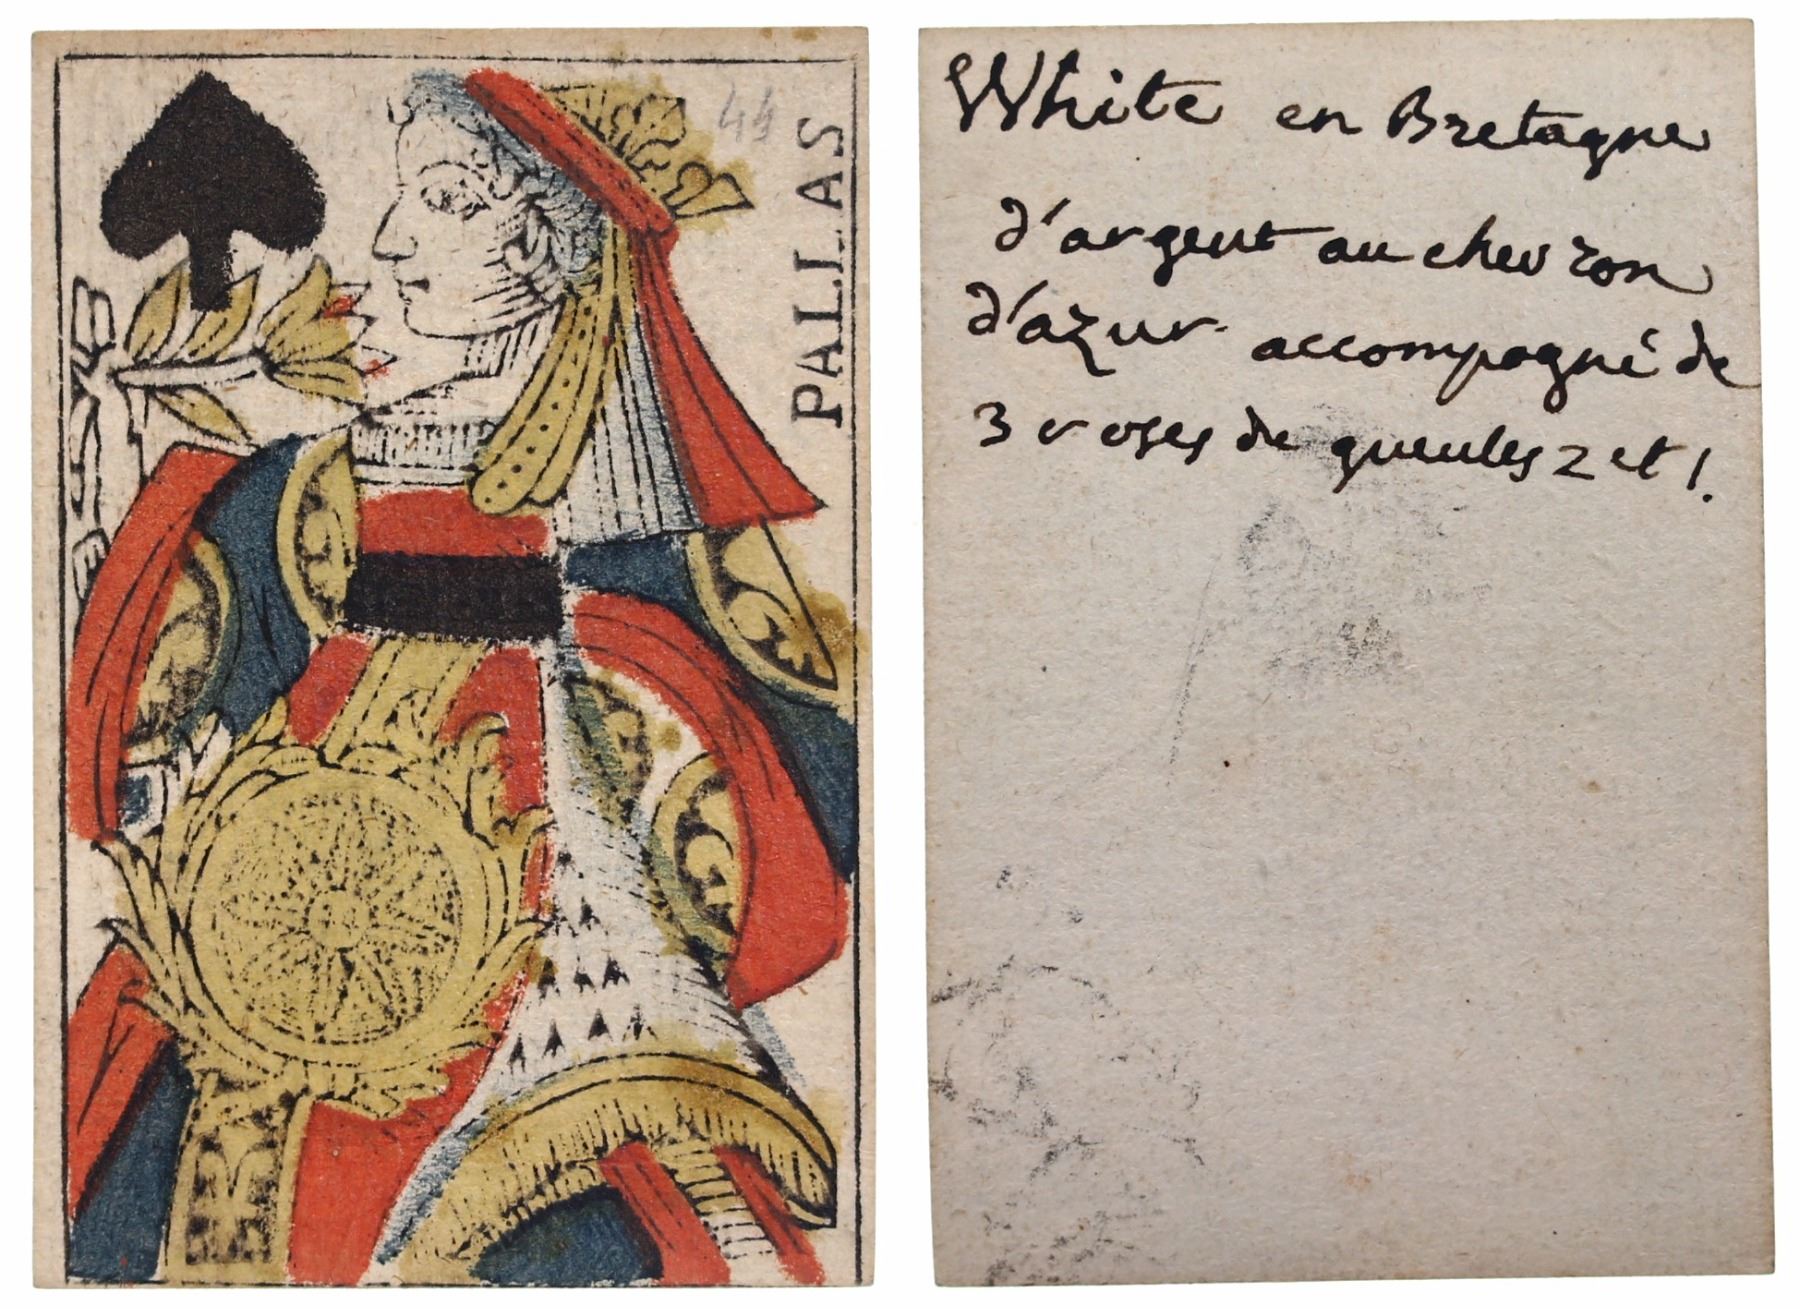 44
PALLAS
White en Bretagne
d'argent au chevron
d'azur accompagné de
3 roses de gueules 2 et 1.